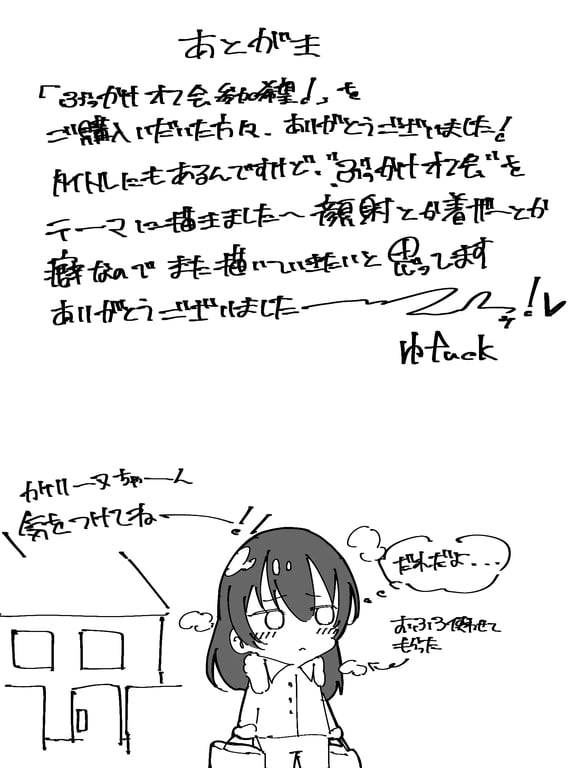 あとがき
「ぶっかけオフ会参加希望！」を
ご購入いただいた方々、ありがとうございました！
タイトルにもあるんですけど、"ぶっかけオフ会"を
テーマに描きました～ 顔射とか着ぶっとか
癖なのでまた描いていきたいと思ってます
ありがとうございましたーッ！
ゆfuck
カケリーヌちゃーん
気をつけてねー!!
だれだよ...
おふろ使わせて
もらった